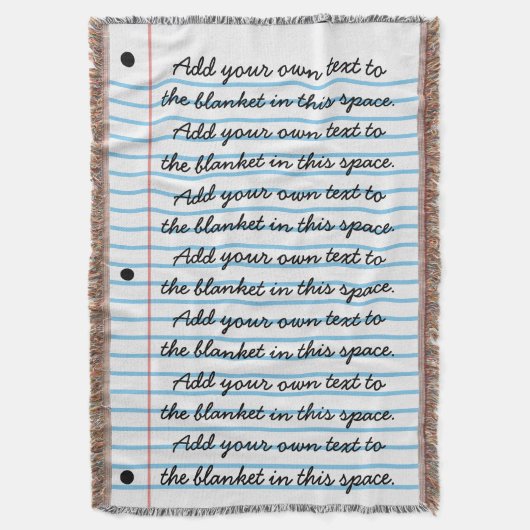 Add your own text to
the blanket in this space.
Add your own text to
the blanket in this space.
Add your own text to
the blanket in this space.
Add your own text to
the blanket in this space.
Add your own text to
the blanket in this space.
Add your own text to
the blanket in this space.
Add your own text to
the blanket in this space.